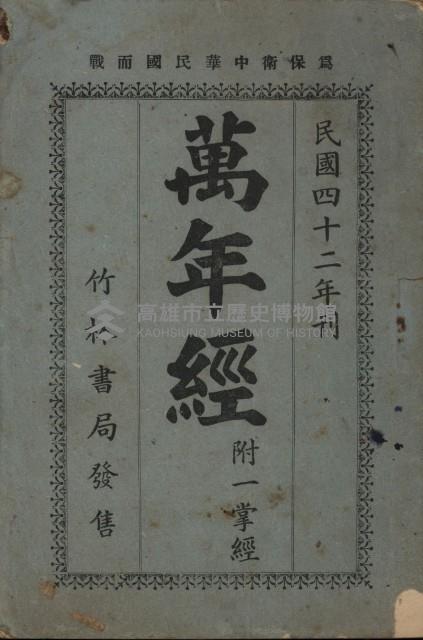 為保衛中華民國而戰
民國四十二年刊
萬年經
附一掌經
竹林書局發售
高雄市立歷史博物館
KAOHSIUNG MUSEUM OF HISTORY